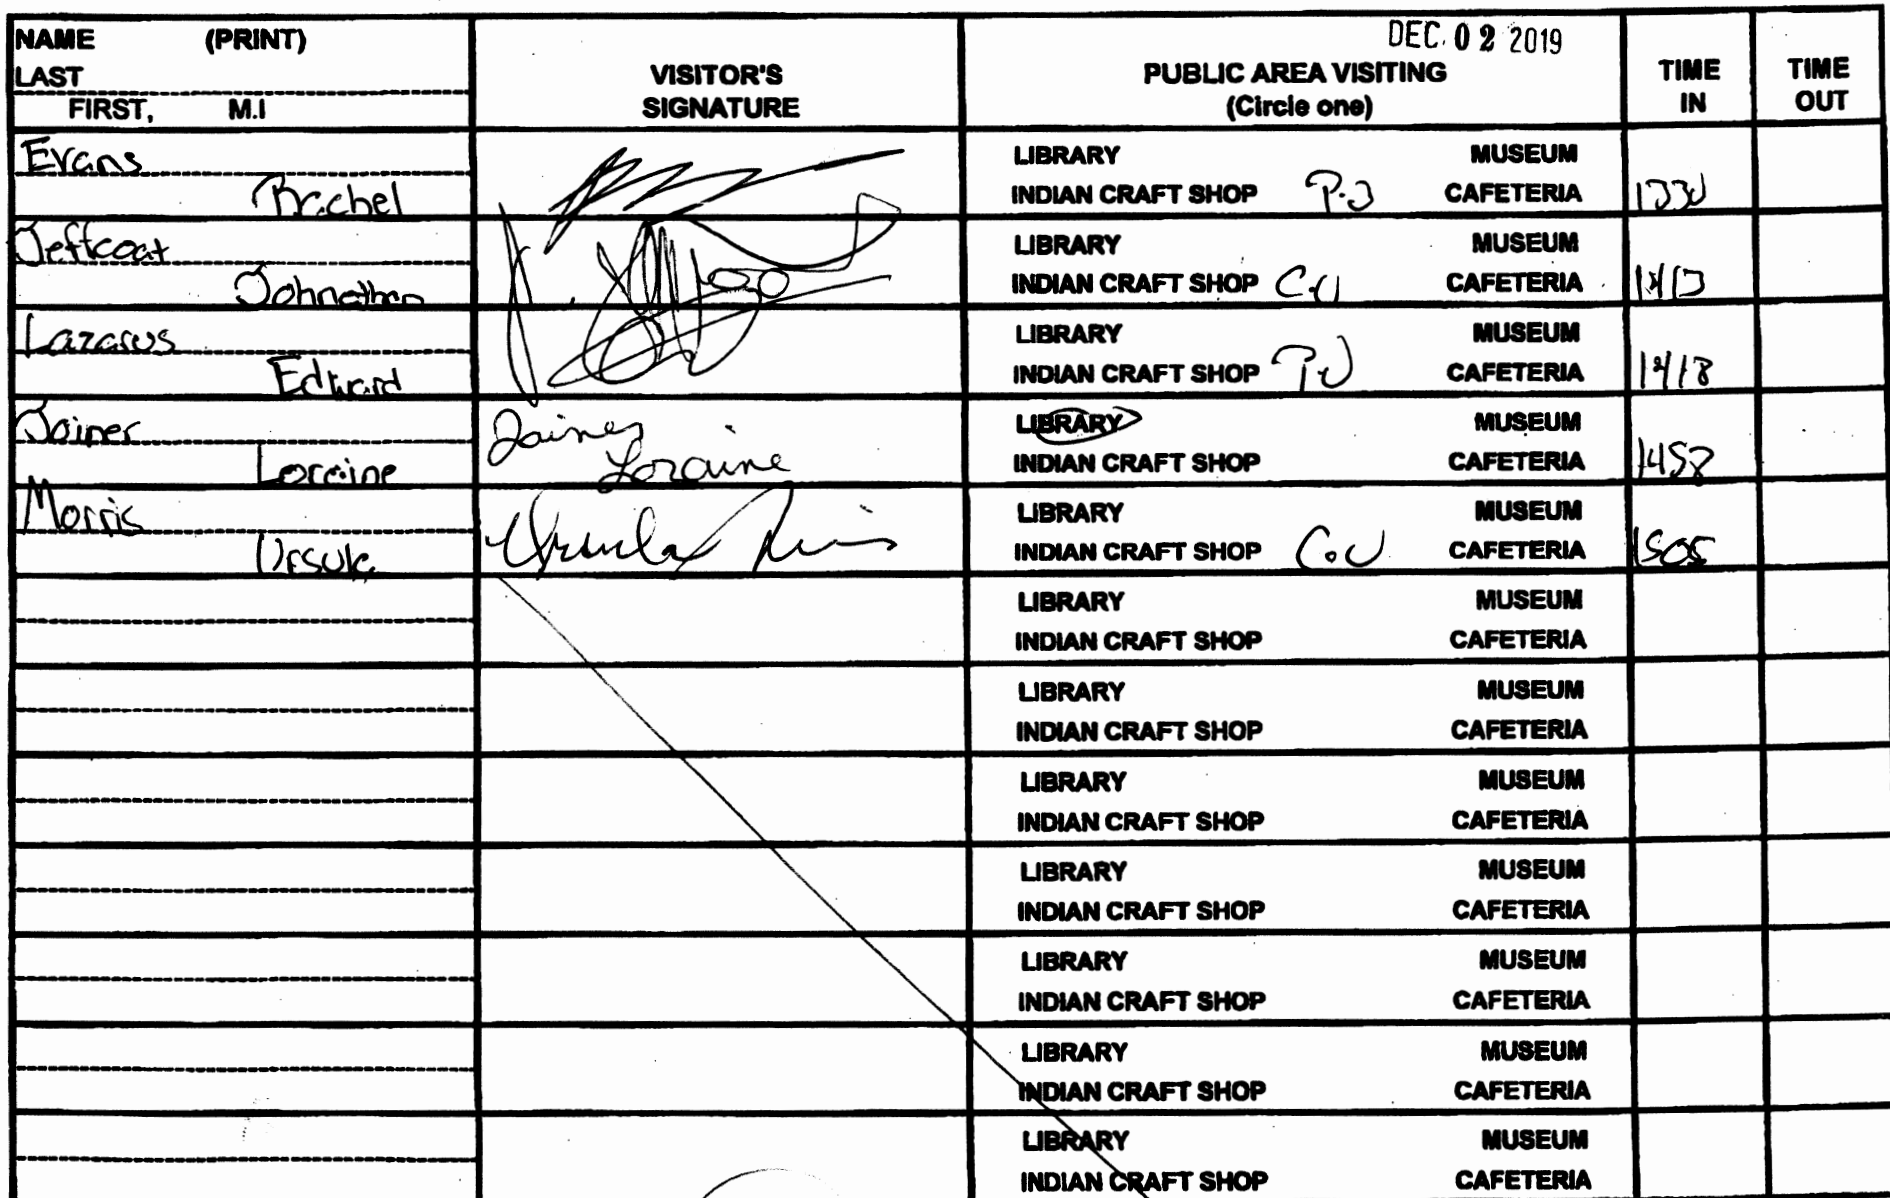 DEC. 02 2019
NAME (PRINT)
LAST
FIRST, M.I
VISITOR'S
SIGNATURE
PUBLIC AREA VISITING
(Circle one)
TIME
IN
TIME
OUT
Evans
Rachel
LIBRARY MUSEUM
INDIAN CRAFT SHOP CAFETERIA
1330
Jeffcoat
Johnathan
LIBRARY MUSEUM
INDIAN CRAFT SHOP C.U CAFETERIA
1413
Lazarus
Edward
LIBRARY MUSEUM
INDIAN CRAFT SHOP CAFETERIA
1418
Joiner
Loraine
Joiner
Loraine
LIBRARY MUSEUM
INDIAN CRAFT SHOP CAFETERIA
1458
Morris
Ursula
Ursula
LIBRARY MUSEUM
INDIAN CRAFT SHOP C.U CAFETERIA
1505
LIBRARY MUSEUM
INDIAN CRAFT SHOP CAFETERIA
LIBRARY MUSEUM
INDIAN CRAFT SHOP CAFETERIA
LIBRARY MUSEUM
INDIAN CRAFT SHOP CAFETERIA
LIBRARY MUSEUM
INDIAN CRAFT SHOP CAFETERIA
LIBRARY MUSEUM
INDIAN CRAFT SHOP CAFETERIA
LIBRARY MUSEUM
INDIAN CRAFT SHOP CAFETERIA
LIBRARY MUSEUM
INDIAN CRAFT SHOP CAFETERIA